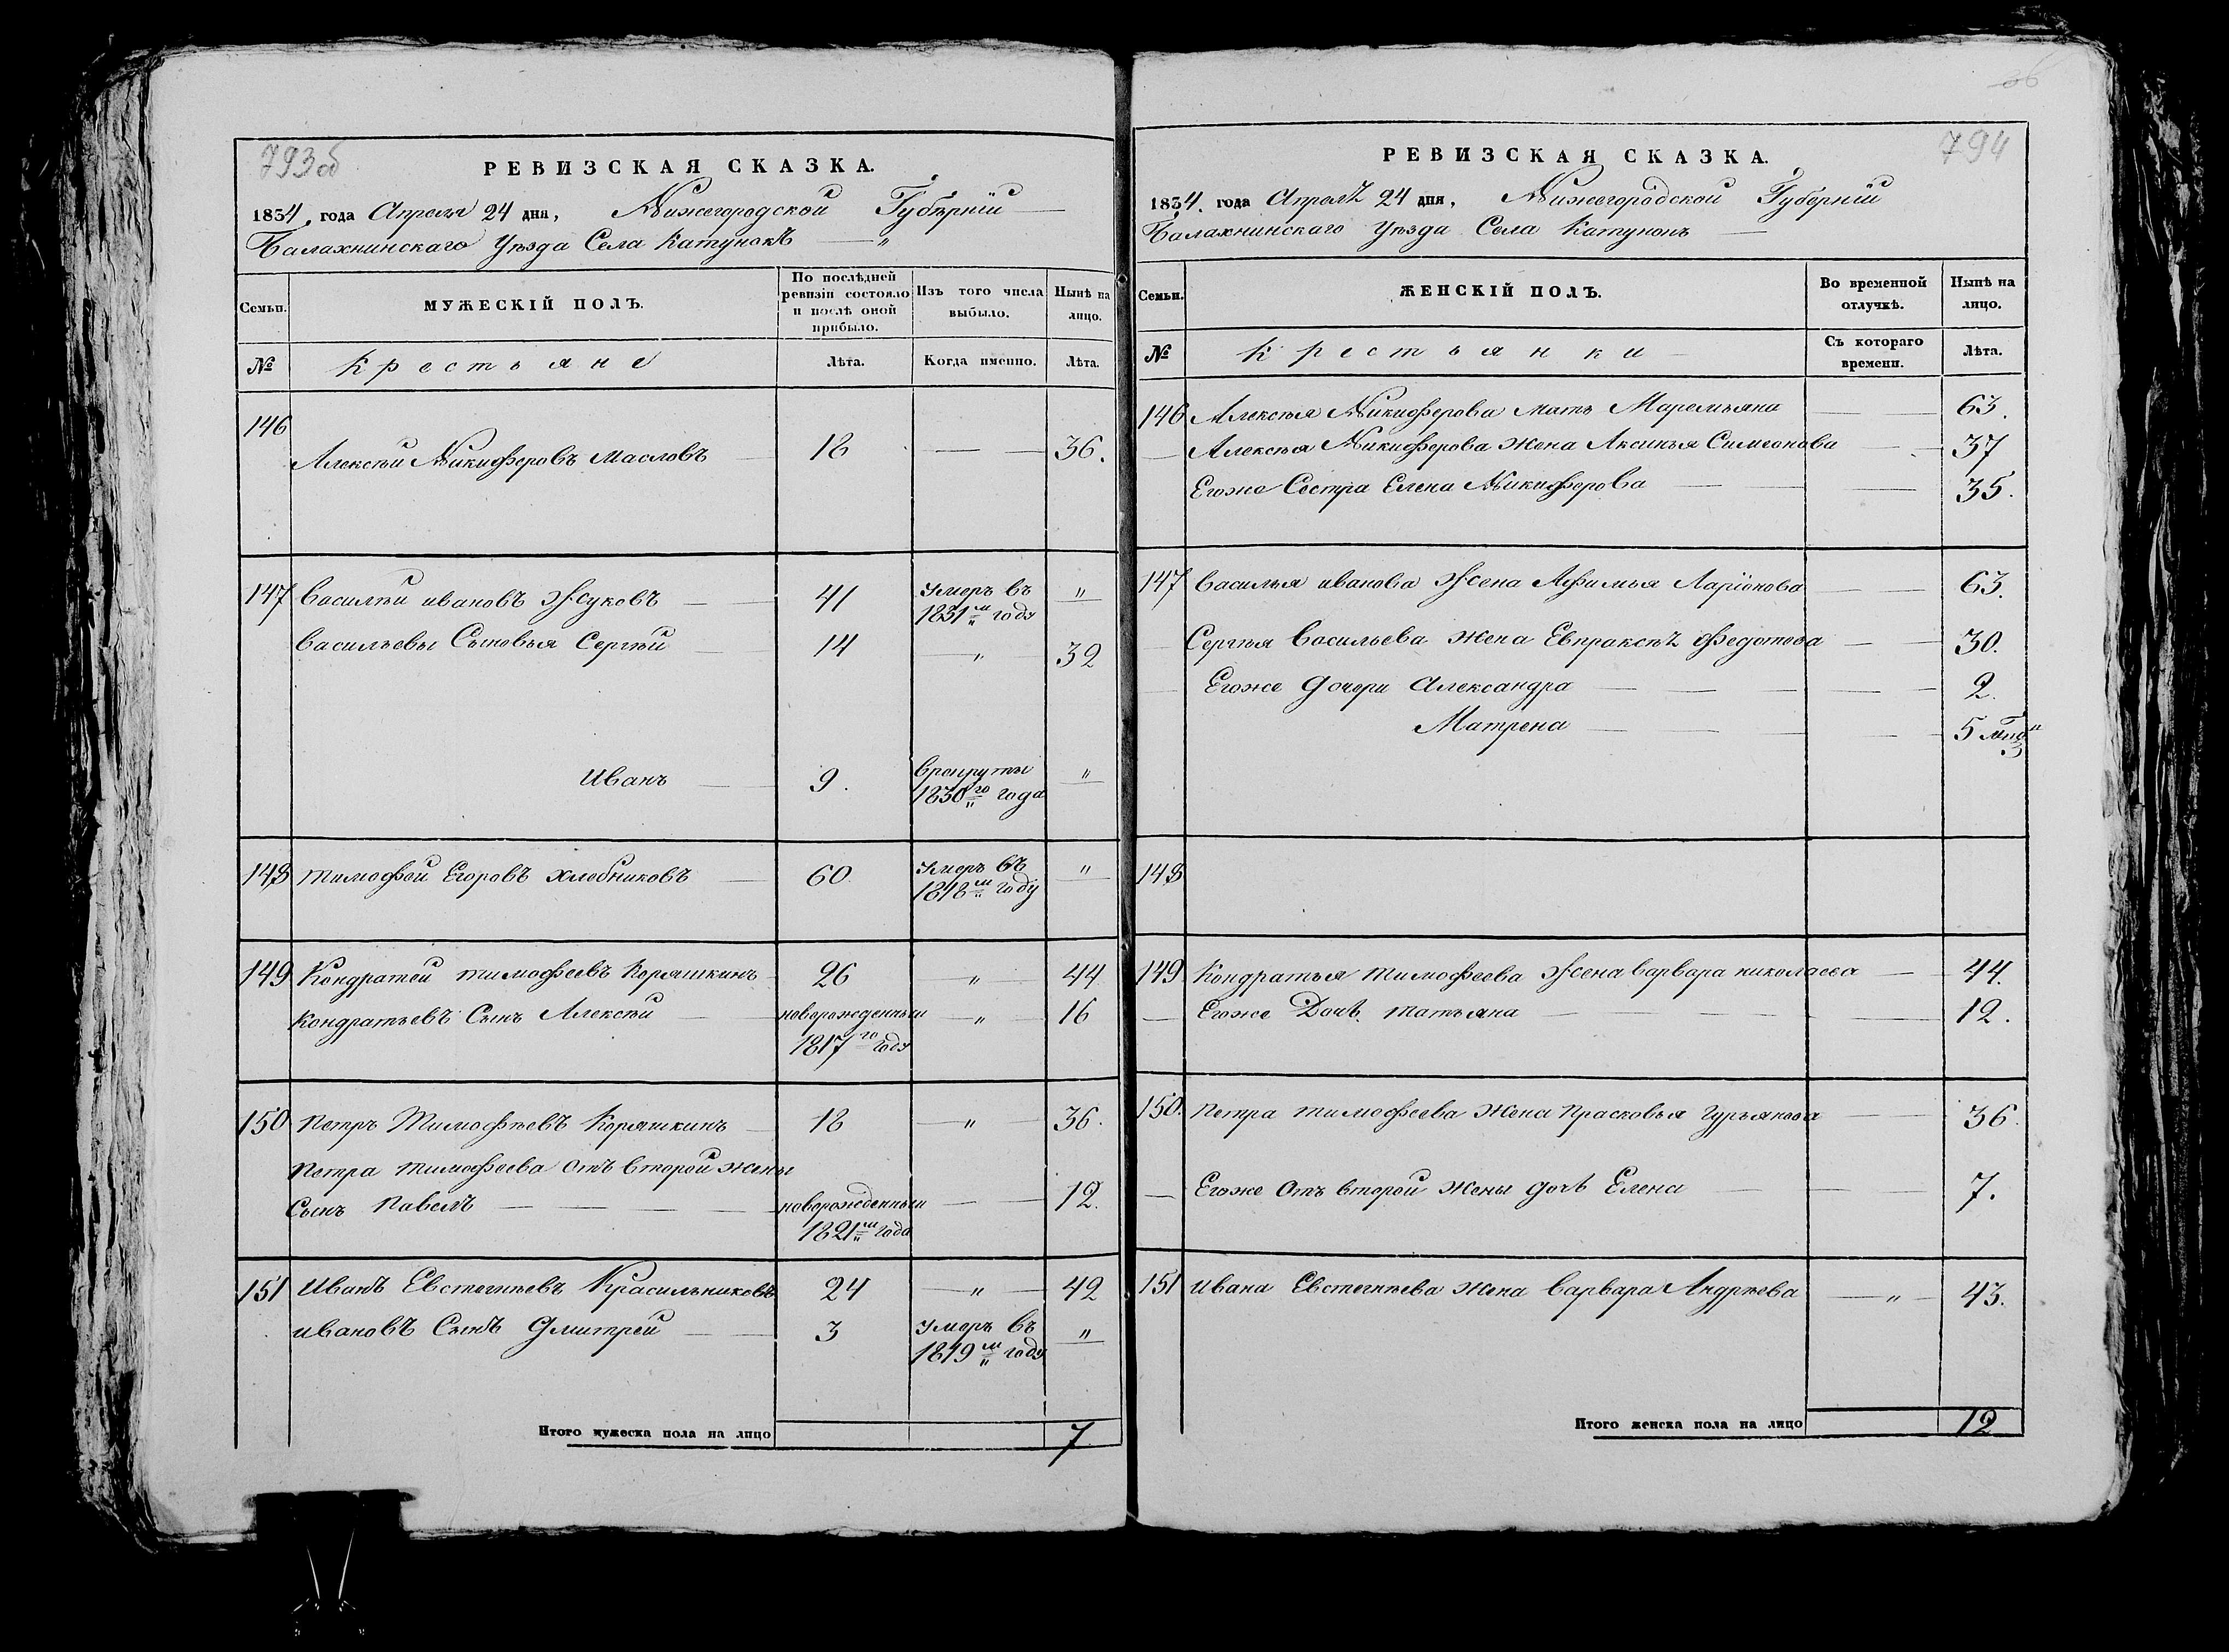 793об
РЕВИЗСКАЯ СКАЗКА.
1834. года Апреля 24 дня, Нижегородской Губѣрніи
Балахнинскаго Уѣзда Села Катунокъ
Семьи.
МУЖЕСКІЙ ПОЛЪ.
По послѣдней ревизіи состояло и послѣ оной прибыло.
Изъ того числа выбыло.
Нынѣ на лицо.
№
Крестьяне
Лѣта.
Когда именно.
Лѣта.
146
Алексѣй Никифоровъ Масловъ 18 — 36.
147 Василѣй ивановъ Жуковъ 41 Умеръ въ 1831м году "
Васильевы Сыновья Сергѣй 14 " 32
Иванъ 9. Врекруты 1830го года "
148 Тимофей Егоровъ Хлебниковъ 60 Умеръ въ 1818м году "
149 Кондратей Тимофеевъ Коряшкинъ 26 " 44
Кондратьевъ Сынъ Алексѣй новорожденный " 16
1817го году
150 Петръ Тимофѣевъ Коряшкинъ 18 " 36.
Петра Тимофеева Отъ Второй жены
Сынъ Павелъ новорожденный — 12.
1821м года
151 Иванъ Евстегнѣевъ Красильниковъ 24 " 42
ивановъ Сынъ Дмитрей 3 Умеръ въ 1819м году "
Итого мужеска пола на лицо 7
36
794
РЕВИЗСКАЯ СКАЗКА.
1834. года Апреля 24 дня, Нижегородской Губерніи
Балахнинскаго Уѣзда Села Катунокъ
Семьи.
ЖЕНСКІЙ ПОЛЪ.
Во временной отлучкѣ.
Нынѣ на лицо.
№
Крестьянки
Съ котораго времени.
Лѣта.
146 Алексѣя Никифорова мать Маремьяна 63.
Алексѣя Никифорова жена Аксинья Симеонова 37
Егоже Сестра Елена Никифорова 35.
147 Василья иванова Жена Афимья Ларіонова 63.
Сергѣя Васильева жена Евпраксѣя Федотова 30.
Егоже дочери Александра 2.
Матрена 5
148
149 Кондратья Тимофеева Жена Варвара николаева 44.
Егоже Дочь Татьяна 12.
150. Петра Тимофеева жена Прасковья Гурьянова 36.
Егоже Отъ второй жены дочь Елена 7.
151 Ивана Евстегнѣева жена Варвара Андрѣева " 43.
Итого женска пола на лицо 12